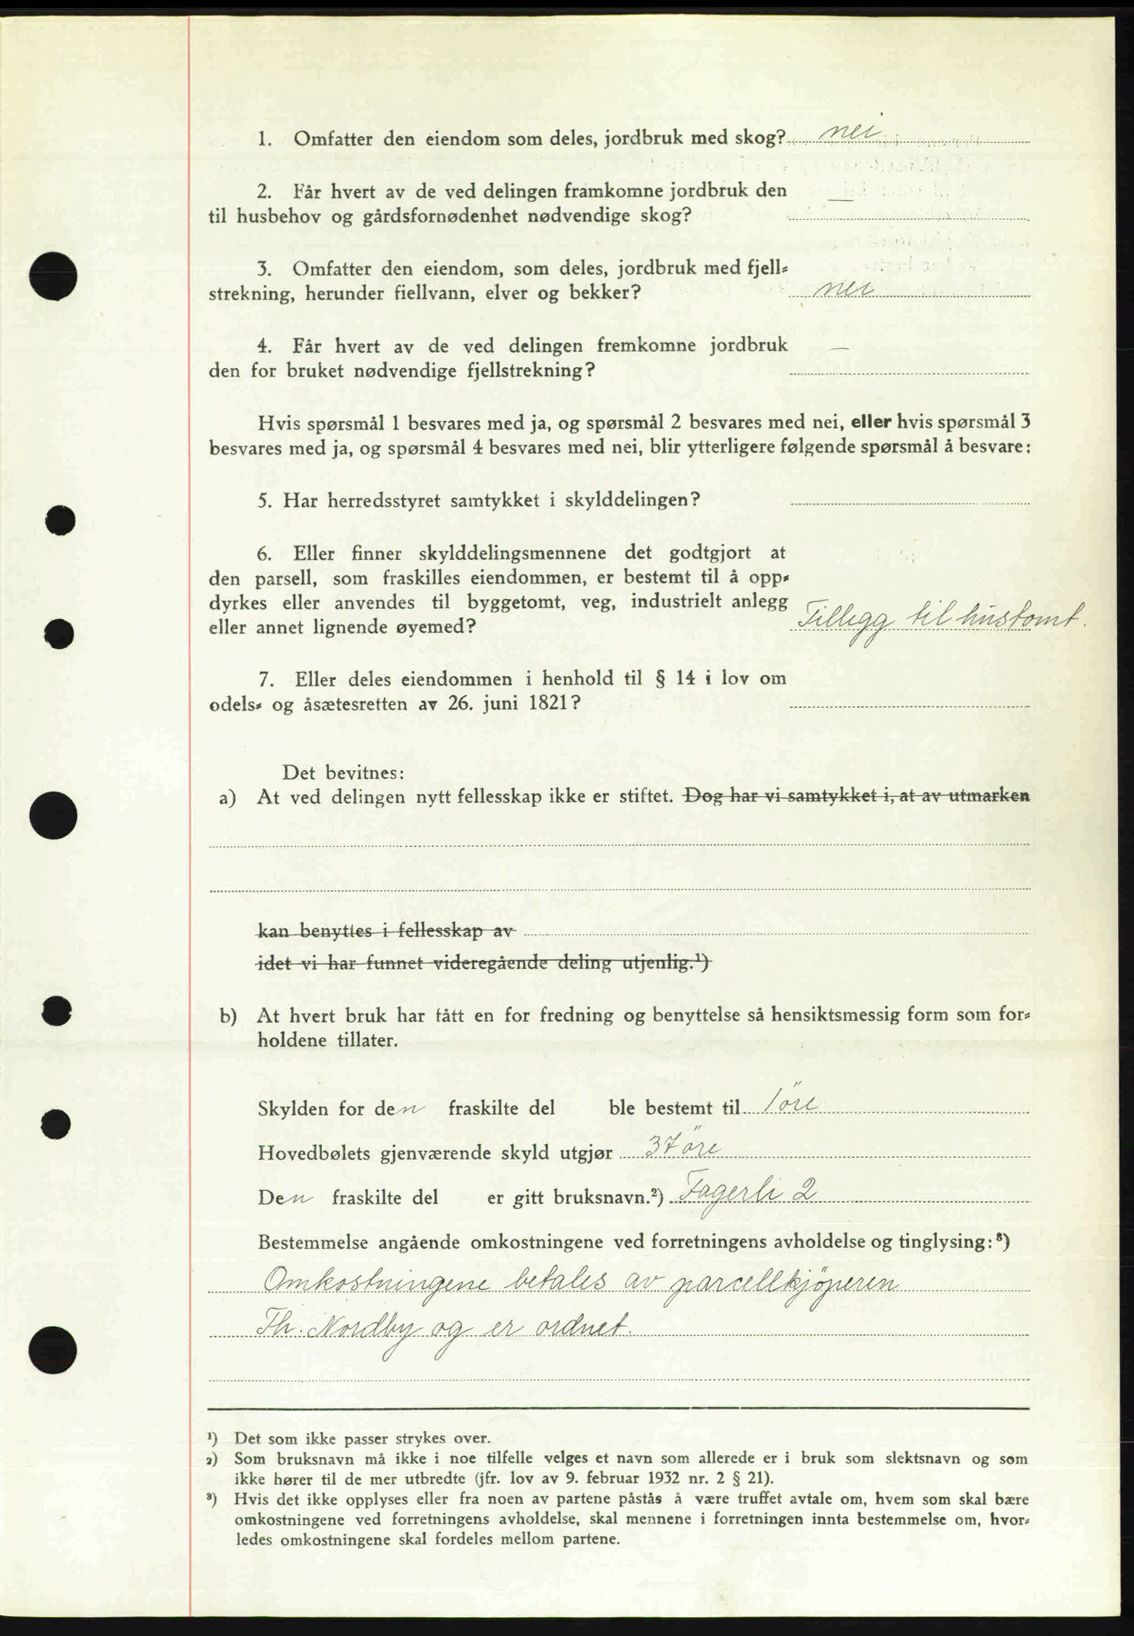 1. Omfatter den eiendom som deles, jordbruk med skog? nei
2. Får hvert av de ved delingen framkomne jordbruk den —
til husbehov og gårdsfornødenhet nødvendige skog?
3. Omfatter den eiendom, som deles, jordbruk med fjell-
strekning, herunder fiellvann, elver og bekker? nei
4. Får hvert av de ved delingen fremkomne jordbruk —
den for bruket nødvendige fjellstrekning?
Hvis spørsmål 1 besvares med ja, og spørsmål 2 besvares med nei, eller hvis spørsmål 3
besvares med ja, og spørsmål 4 besvares med nei, blir ytterligere følgende spørsmål å besvare:
5. Har herredsstyret samtykket i skylddelingen?
6. Eller finner skylddelingsmennene det godtgjort at
den parsell, som fraskilles eiendommen, er bestemt til å opp-
dyrkes eller anvendes til byggetomt, veg, industrielt anlegg
eller annet lignende øyemed? Tillegg til hustomt.
7. Eller deles eiendommen i henhold til § 14 i lov om
odels- og åsætesretten av 26. juni 1821?
Det bevitnes:
a) At ved delingen nytt fellesskap ikke er stiftet. Dog har vi samtykket i, at av utmarken
kan benyttes i fellesskap av
idet vi har funnet videregående deling utjenlig.¹)
b) At hvert bruk har fått en for fredning og benyttelse så hensiktsmessig form som for-
holdene tillater.
Skylden for den fraskilte del ble bestemt til 1 öre
Hovedbølets gjenværende skyld utgjør 37 öre
Den fraskilte del er gitt bruksnavn.²) Fagerli 2
Bestemmelse angående omkostningene ved forretningens avholdelse og tinglysing:³)
Omkostningene betales av parcellkjöperen
Th. Nordby og er ordnet.
¹) Det som ikke passer strykes over.
²) Som bruksnavn må ikke i noe tilfelle velges et navn som allerede er i bruk som slektsnavn og som
ikke hører til de mer utbredte (jfr. lov av 9. februar 1932 nr. 2 § 21).
³) Hvis det ikke opplyses eller fra noen av partene påstås å være truffet avtale om, hvem som skal bære
omkostningene ved forretningens avholdelse, skal mennene i forretningen innta bestemmelse om, hvor-
ledes omkostningene skal fordeles mellom partene.